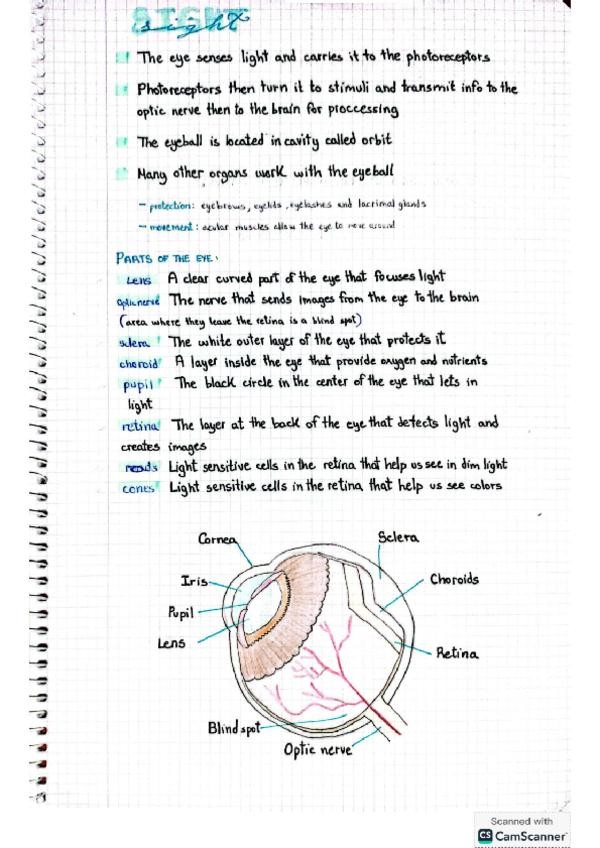 SIGHT
sight
The eye senses light and carries it to the photoreceptors
Photoreceptors then turn it to stimuli and transmit info to the
optic nerve then to the brain for proccessing
The eyeball is located in cavity called orbit
Many other organs work with the eyeball
- protection: eyebrows, eyelids, eyelashes and lacrimal glands
- movement: ocular muscles allow the eye to move around
PARTS OF THE EYE:
Lens A clear curved part of the eye that focuses light
Optic nerve The nerve that sends images from the eye to the brain
(area where they leave the retina is a blind spot)
sclera The white outer layer of the eye that protects it
choroid A layer inside the eye that provide oxygen and nutrients
pupil The black circle in the center of the eye that lets in
light
retina The layer at the back of the eye that detects light and
creates images
roads Light sensitive cells in the retina that help us see in dim light
cones Light sensitive cells in the retina that help us see colors
Cornea
Sclera
Iris
Choroids
Pupil
Lens
Retina
Blind spot
Optic nerve
Scanned with
CS CamScanner